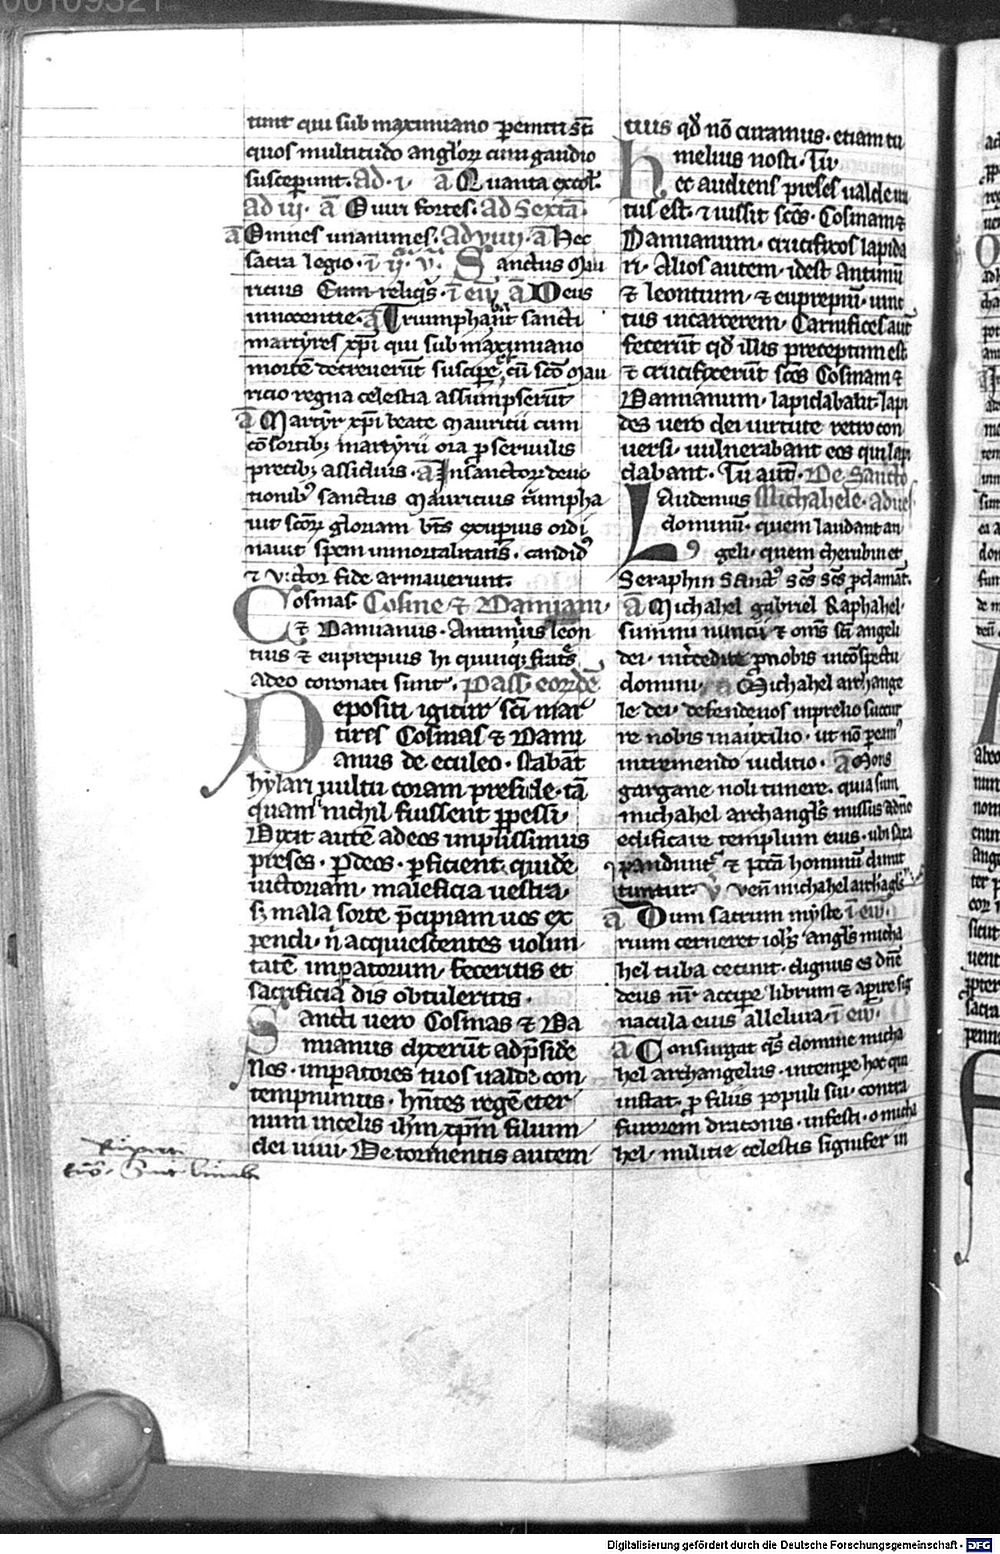 00109321
tiunt qui sub maximiano ꝑempti st̄
quos multitudo angloꝝ cum gaudio
susceperunt. Ad .i. a᷃ Quanta excol.
Ad iii. a᷃ Quiui fortes. Ad Sextā.
a᷃ Omnes unanimes. Ad viiii. a᷃ Hec
sacra legio. ī iī. v᷃. Sanctus Mau
ricius Cum reliqis. ī eu᷃. a᷃ Deus
innocentie. a᷃ Triumphant sancti
martyres xp̄i qui sub maximiano
mortē decreuerūt suscipe, cū sc̄o Mau
ricio regna celestia assumpserūt
a᷃ Martyr xp̄i beate Mauricii cum
cōsortibꝫ martyrii ora ꝑ seruulis
precibꝫ assiduis. a᷃ In sanctoꝝ deuo
tionibꝰ sanctus Mauricius triumpha
uit sc̄oꝝ gloriam bt̄s exuperius ordi
nauit spem inmortalitatis. candidꝰ
⁊ victor fide armauerunt.
Cosmas Cosme ⁊ Damiani.
⁊ Damianus. Antimus leon
tius ⁊ euprepius hi quinqꝫ frat̄s
a deo coronati sunt. Pass eoꝝdē
Depositi igitur sc̄i mar
tires Cosmas ⁊ Dami
anus de eculeo. stabāt
hylari uultu coram preside. tā
quam nichil fuissent ꝑpessi.
Dixit autē ad eos impiissimus
preses. Ꝑ deos. ꝑficient quidē
uictoriam. maleficia uestra.
sꝫ mala sorte p̄cipiam uos ex
pendi. n̄ acquiescentes uolun
tatē imꝑatorum. feceritis et
sacrificia diis obtuleritis.
Sancti uero Cosmas ⁊ Da
mianus dixerūt ad p̄sidē
Nos. imꝑatores tuos ualde con
tempnimus. hn̄tes regē eter
num in celis ih̄m xp̄m filium
dei uiui. De tormentis autem
tuis qd̄ nō curamus. etiam tu
melius nosti. Tu᷃
Hec audiens preses ualde ira
tus est. ⁊ iussit sc̄os. Cosmam ⁊
Damianum. crucifixos lapida
ri. Alios autem. idest antimū
⁊ leontium. ⁊ euprepiū. uinc
tus in carcerem. Carnifices aut̄
fecerūt qd̄ illis preceptum est
⁊ crucifixerūt sc̄os Cosmam ⁊
Damianum. lapidabant. lapi
des uero dei uirtute retro con
uersi. uulnerabant eos qui lapi
dabant. Tu aut᷃. De Sancto
Laudemus Michahele. adues
dominū. quem laudant an
geli. quem cherubin et
Seraphin Sanctꝰ sc̄s sc̄s ꝓclamāt.
a᷃ Michahel gabriel Raphahel.
summi nuncii ⁊ om̄s sc̄i angeli
dei. intercedite ꝓ nobis in cōspectu
domini. a᷃ Michahel archange
le dei. defende nos in prelio succur
re nobis in auxilio. ut nō ꝑeamꝰ
in tremendo iudicio. a᷃ Mons
gargane noli timere. quia sum
michahel archangls missus a dn̄o
edificare templum eius. ubi sata
panduntr̄ ⁊ pctā hominū dimit
tuntur. v᷃ veni michahel archagls
a᷃ Dum sacrum myste ī eu᷃.
rium cerneret ioh̄s angls micha
hel tuba cecinit. dignus es dn̄e
deus nr̄ accipe librum ⁊ aperire sig
nacula eius alleluia. ī eu᷃.
a᷃ Consurgat qs̄ domine micha
hel archangelus. in tempe hoc qui
instat. ꝓ filiis populi sui. contra
furorem draconis. infesti. O micha
hel. militie celestis signifer in
Digitalisierung gefördert durch die Deutsche Forschungsgemeinschaft - DFG